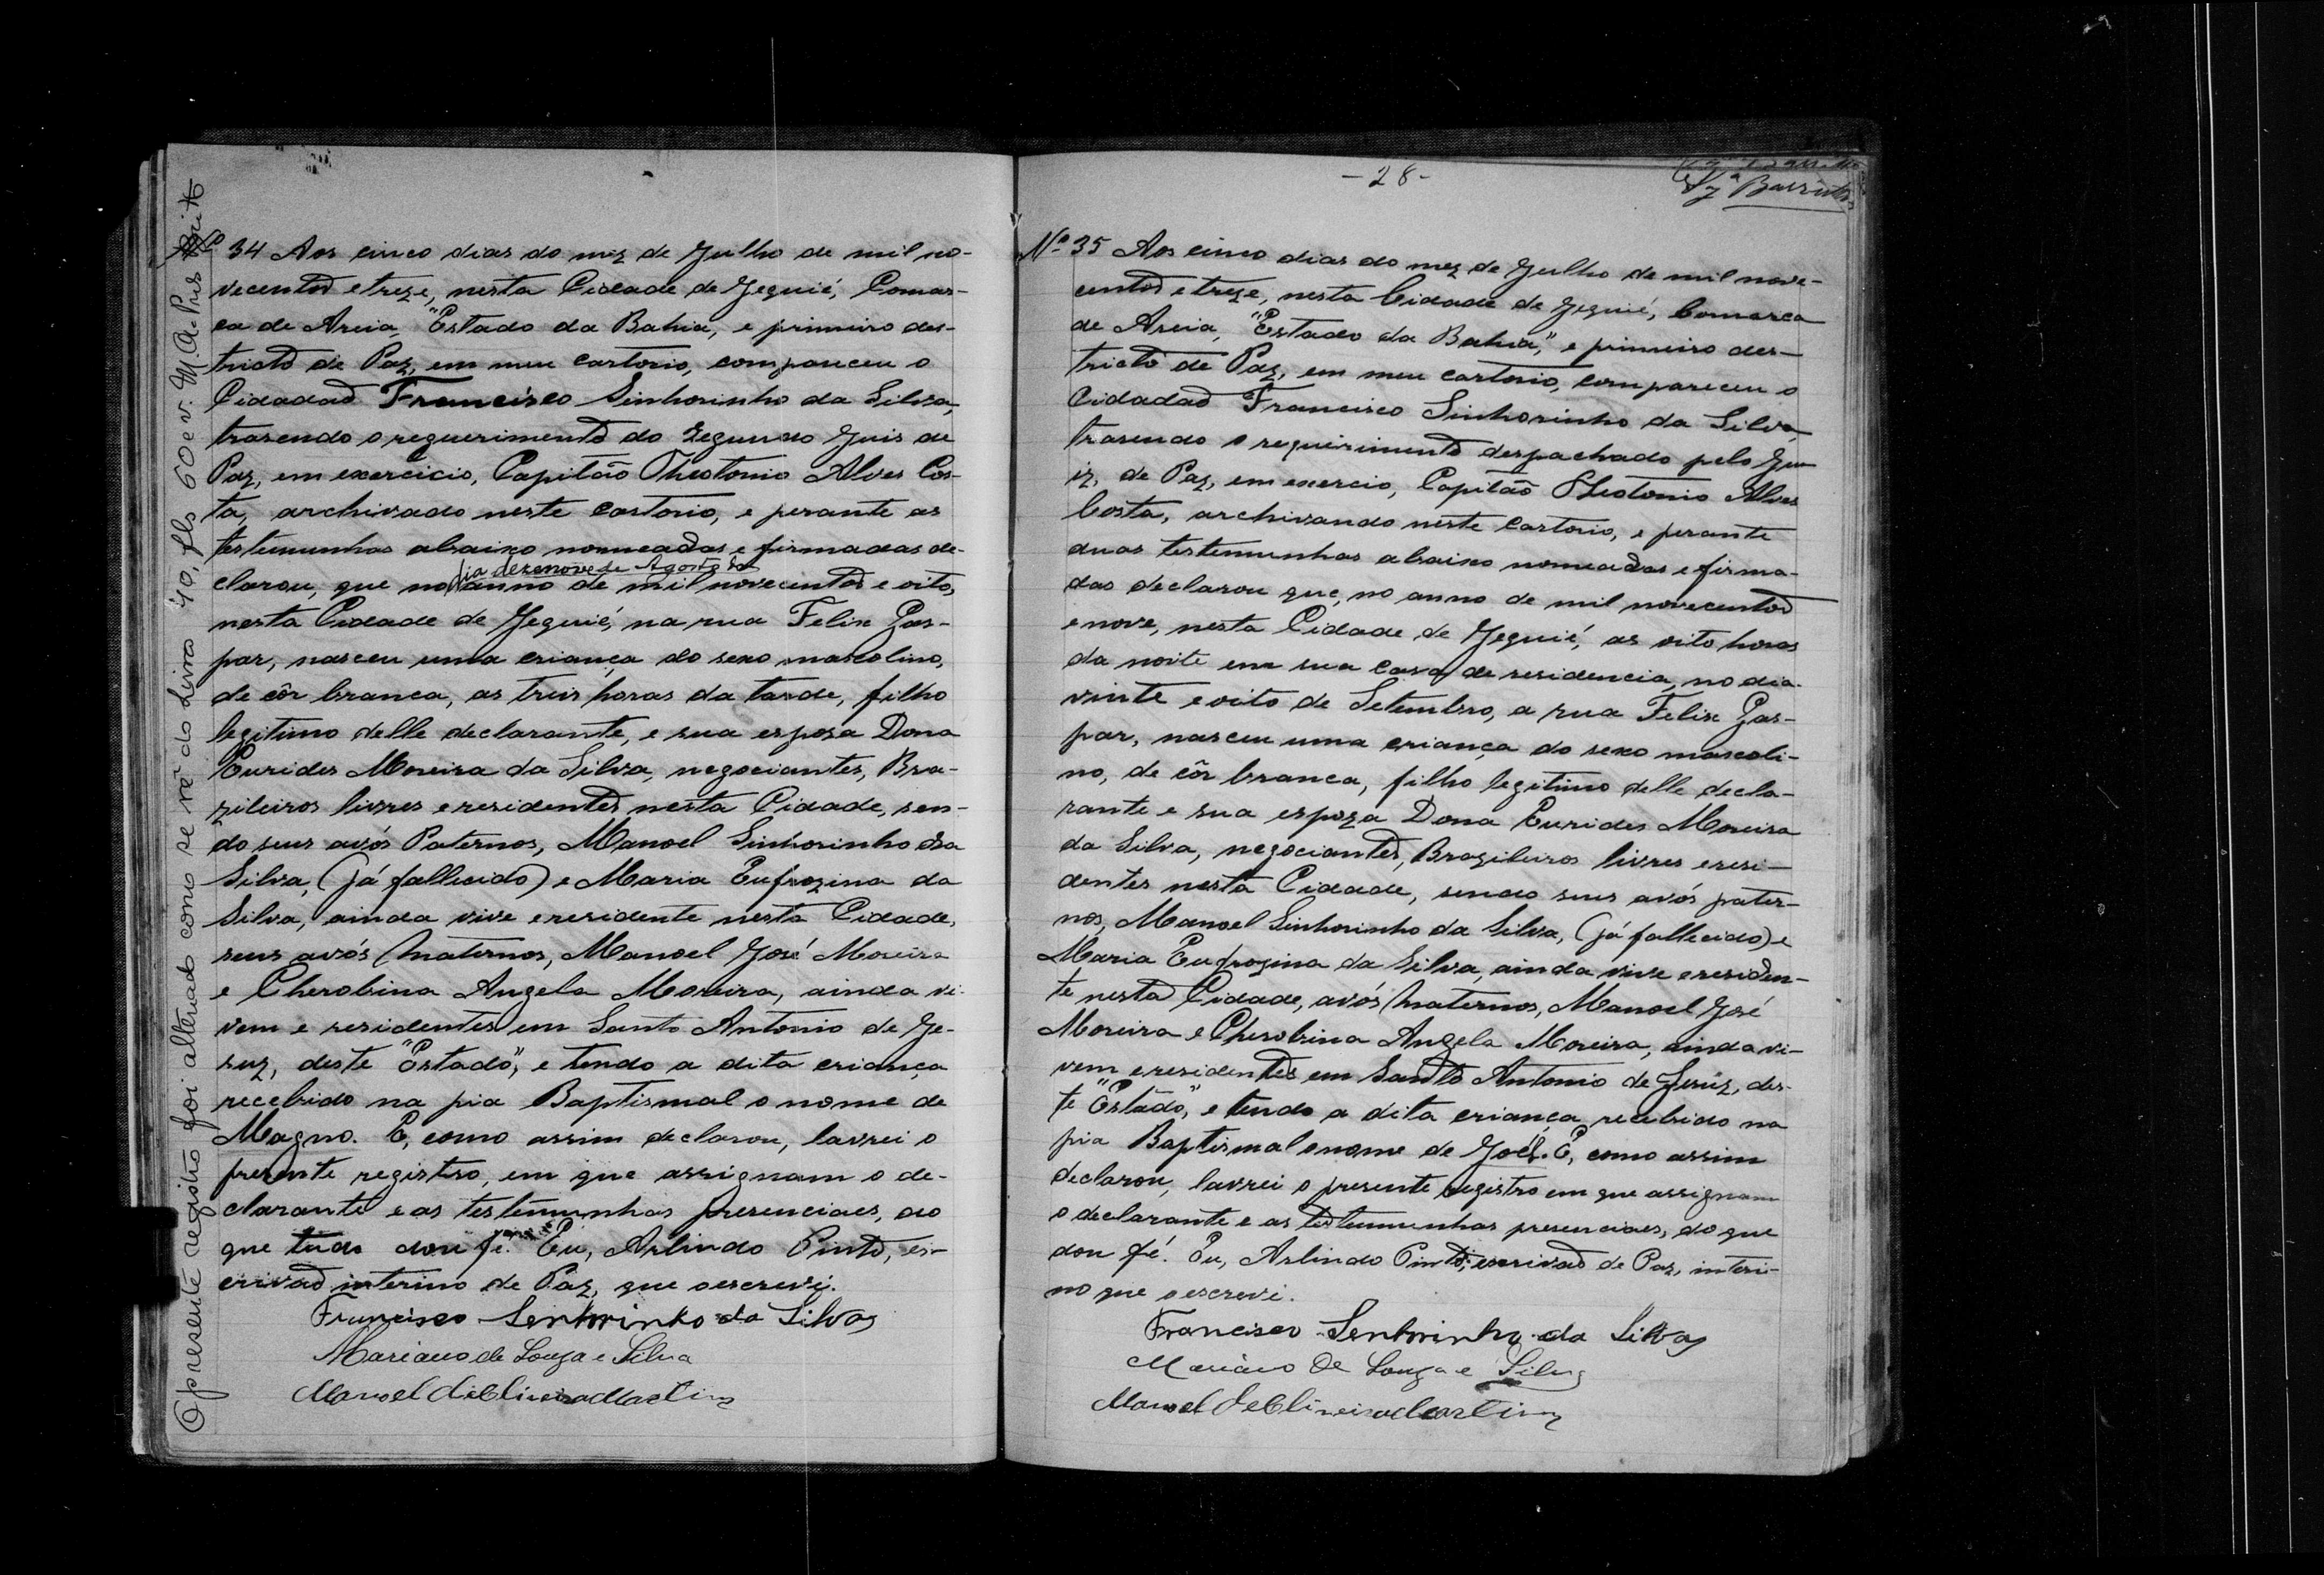 Nº 34 Aos cinco dias do mez de Julho de mil no-
vecentos e treze, nesta Cidade de Jequié, Comar-
ca de Areia, "Estado da Bahia, e primeiro des-
tricto de Paz, em meu cartorio, compareceu o
Cidadão Francisco Sinhorinho da Silva,
trasendo o requerimento do Segundo Juis de
Paz, em exercicio, Capitão Theotonio Alves Cos-
ta, archivado neste cartorio, e perante as
testemunhas abaixo nomeadas e firmadas de-
dia dezenove de Agosto do
clarou, que no anno de mil novecentos e oito,
nesta Cidade de Jequié, na rua Felix Gas-
par, nasceu uma criança do sexo mascolino,
de côr branca, as treis horas da tarde, filho
legitimo delle declarante, e sua espoza Dona
Eurides Moreira da Silva, negociantes, Bra-
zileiros livres e residentes nesta Cidade, sen-
do seus avós Paternos, Manoel Sinhorinho da
Silva, (já fallecido) e Maria Eufrozina da
Silva, ainda vive e residente nesta Cidade,
seus avós Maternos, Manoel José Moreira
e Cherobina Angela Moreira, ainda vi-
vem e residentes em Santo Antonio de Je-
suz, deste "Estado", e tendo a dita criança
recebido na pia Baptismal o nome de
Magno. E, como assim declarou, lavrei o
presente registro, em que assignam o de-
clarante e as testemunhas presenciaes, do
que tudo dou fé. Eu, Arlindo Pinto, es-
crivão interino de Paz, que o escrevi.
Francisco Senhorinho da Silva
Mariano de Souza e Silva
Manoel de Oliveira Martins
O presente registro foi alterado como se vê do Livro 40, fls 60 e v.
- 28 -
Nº 35 Aos cinco dias do mez de Julho de mil nove-
centos e treze, nesta Cidade de Jequié, Comarca
de Areia, "Estado da Bahia", e primeiro des-
tricto de Paz, em meu cartorio, compareceu o
Cidadão Francisco Sinhorinho da Silva,
trasendo o requirimento despachado pelo Ju-
iz, de Paz, em exercio, Capitão Theotonio Alves
Costa, archivando neste cartorio, e perante
duas testemunhas abaixo nomeadas e firma-
das declarou que, no anno de mil novecentos
e nove, nesta Cidade de Jequié, as oito horas
da noite em sua casa de residencia, no dia
vinte e oito de Setembro, a rua Felix Gas-
par, nasceu uma criança do sexo mascoli-
no, de côr branca, filho legitimo delle decla-
rante e sua espoza Dona Eurides Moreira
da Silva, negociantes, Brazileiros livres e resi-
dentes nesta Cidade, sendo seus avós pater-
nos, Manoel Sinhorinho da Silva, (já fallecido) e
Maria Eufrozina da Silva, ainda vive e residen-
te nesta Cidade, avós Maternos, Manoel José
Moreira e Cherobina Angela Moreira, ainda vi-
vem e residentes em Santo Antonio de Jesuz, des-
te "Estado", e tendo a dita criança recebido na
pia Baptismal o nome de Joél. E, como assim
declarou, lavrei o presente registro em que assignam
o declarante e as testemunhas presenciaes, do que
dou fé. Eu, Arlindo Pinto, escrivão de Paz, interi-
no que o escrevi.
Francisco Senhorinho da Silva
Mariano de Souza e Silva
Manoel de Oliveira Martins